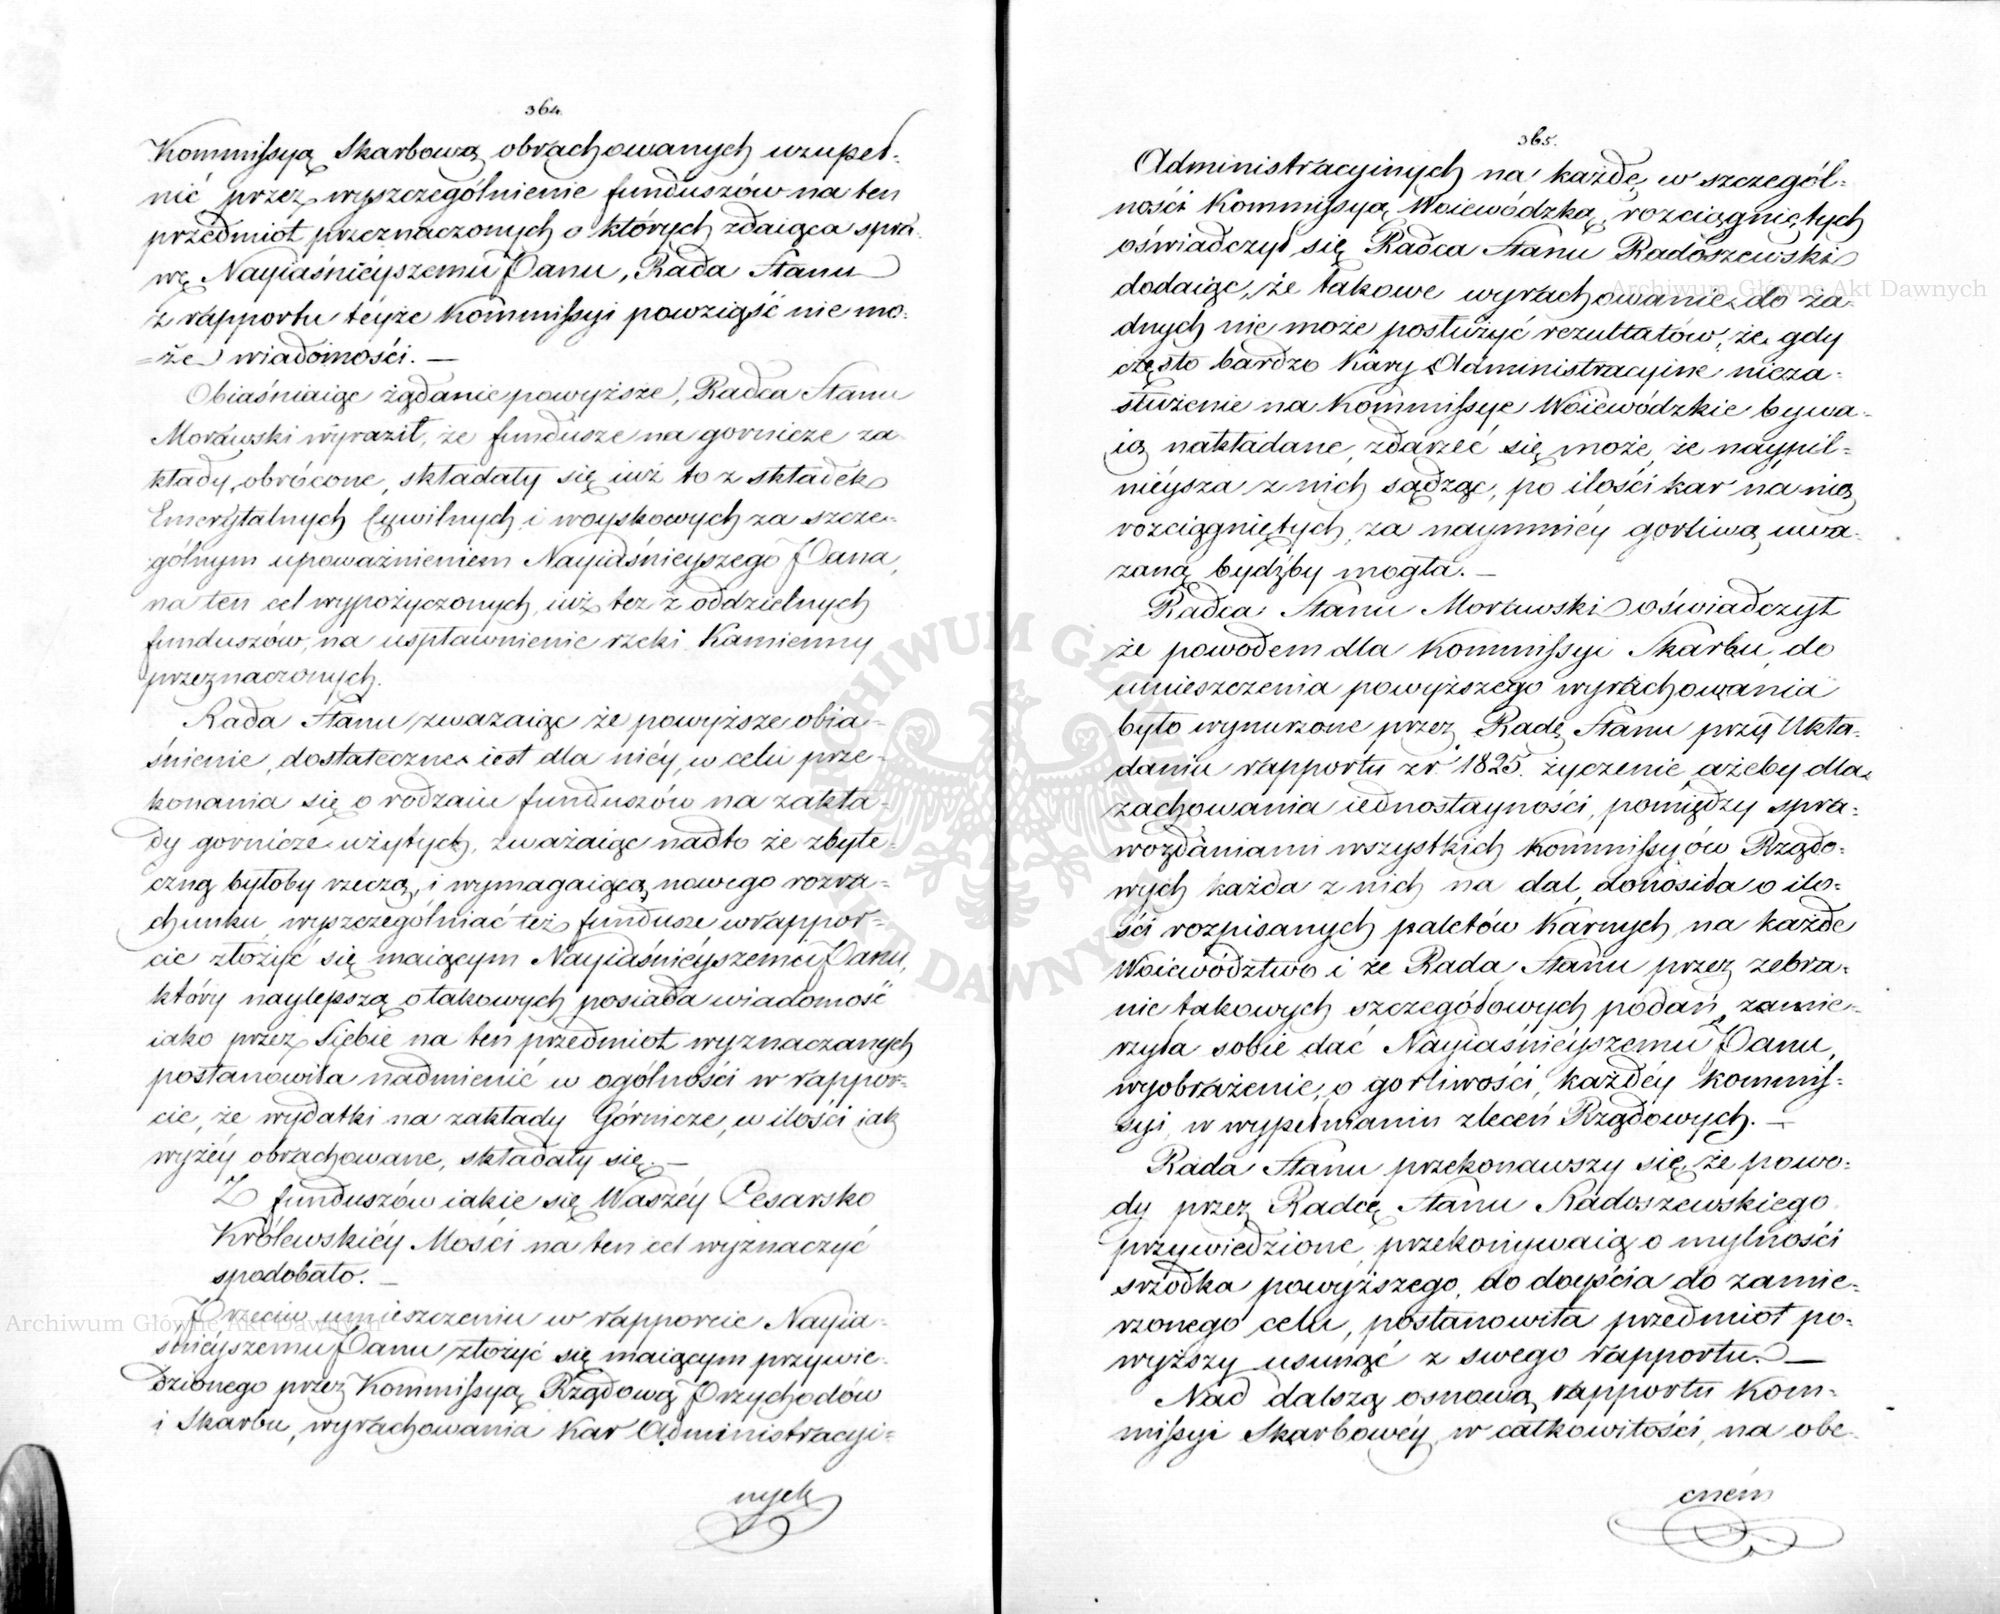 364.
Kommissyą Skarbową obrachowanych uzupeł-
nić przez wyszczególnienie funduszów na ten
przedmiot przeznaczonych o których zdaiąca spra-
wę Nayiaśnieyszemu Panu, Rada Stanu
z rapportu téyże Kommissyi powziąść nie mo-
=że wiadomości. —
Obiaśniaiąc żądanie powyższe, Radca Stanu
Morawski wyraził, że fundusze na gornicze za-
kłady obrócone, składały się iuż to z składek
Emerytalnych Cywilnych i woyskowych za szcze-
gólnym upoważnieniem Nayiaśnieyszego Pana,
na ten cel wypożyczonych, iuż też z oddzielnych
funduszów, na uspławnienie rzeki Kamienny
przeznaczonych.
Rada Stanu zważaiąc że powyższe obia-
śnienie, dostateczne iest dla niéy, w celu prze-
konania się o rodzaiu funduszów na zakła-
dy gornicze użytych, zważaiąc nadto że zbyte-
czną byłoby rzeczą, i wymagaiącą nowego rozra-
chunku wyszczególniać też fundusze w rappor-
cie złożyć się maiącym Nayiaśniéyszemu Panu,
który naylepszą o takowych posiada wiadomość
iako przez Siebie na ten przedmiot wyznaczanych
postanowiła nadmienić w ogólności w rappor-
cie, że wydatki na zakłady Górnicze, w ilości iak
wyżéy obrachowane, składały się. —
Z funduszów iakie się Waszéy Cesarsko
Królewskiéy Mości na ten cel wyznaczyć
spodobało. —
Przeciw umieszczeniu w rapporcie Nayia-
śniéyszemu Panu złożyć się maiącym przywie-
dzionego przez Kommissyą Rządową Przychodów
i Skarbu, wyrachowania Kar Administracyi-
nych
365.
Administracyinych na każdę w szczegól-
ności Kommissyą Woiewódzką, rozciągniętych
oświadczył się Radca Stanu Radoszewski
dodaiąc, że takowe wyrachowanie do ża-
dnych nie może posłużyć rezultatów, że gdy
często bardzo Kary Administracyine nieza-
służenie na Kommissye Woiewódzkie bywa-
ią nakładane, zdarzeć się może, że naypil-
nieysza z nich sądząc, po ilości kar na nią
rozciągniętych, za naymniéy gorliwą uwa-
żaną bydźby mogła. —
Radca Stanu Morawski oświadczył
że powodem dla Kommissyi Skarbu, do
umieszczenia powyższego wyrachowania
było wynurzone przez Radę Stanu przy Ukła-
daniu rapportu z r. 1825. życzenie ażeby dla
zachowania iednostayności, pomiędzy spra-
wozdaniami wszystkich Kommissyów Rządo-
wych każda z nich na dal, donosiła o ilo-
ści rozpisanych paletów Karnych na każde
Woiewództwo i że Rada Stanu przez zebra-
nie takowych szczegółowych podań zamie-
rzyła sobie dać Nayiaśniéyszemu Panu,
wyobrażenie, o gorliwości, każdéy Kommis-
syi w wypełnianiu zleceń Rządowych. —
Rada Stanu przekonawszy się, że powo-
dy przez Radcę Stanu Radoszewskiego
przywiedzione, przekonywaią o mylności
srzodka powyższego, do doyścia do zamie-
rzonego celu, postanowiła przedmiot po-
wyższy usunąć z swego rapportu. —
Nad dalszą osnową rapportu Kom-
missyi Skarbowéy, w całkowitości, na obe-
cném
Archiwum Główne Akt Dawnych
Archiwum Główne Akt Dawnych
ARCHIWUM GŁÓWNE AKT DAWNYCH